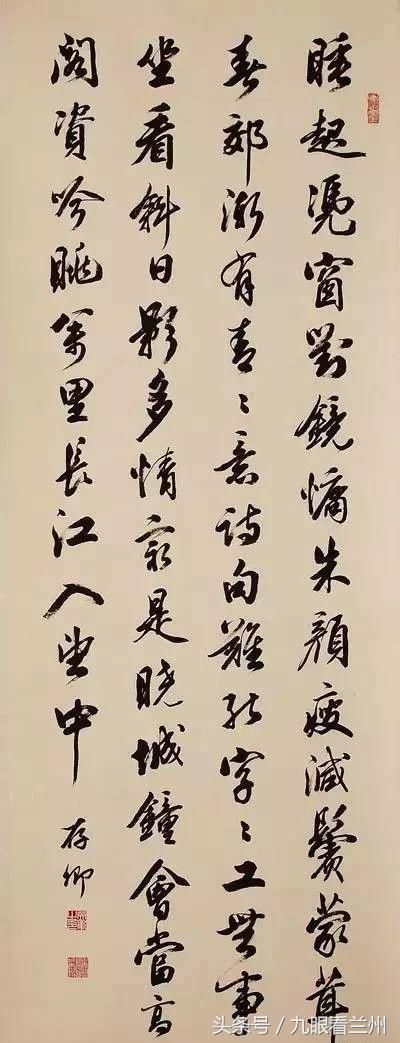 睡起凴窗對鏡慵朱顏瘦減鬢蒙茸
春郊漸有青〻意詩句難能字〻工無事
坐看斜日影多情最是曉城鐘會當高
閣資吟眺萬里長江入望中
存卿
头条号 / 九眼看兰州